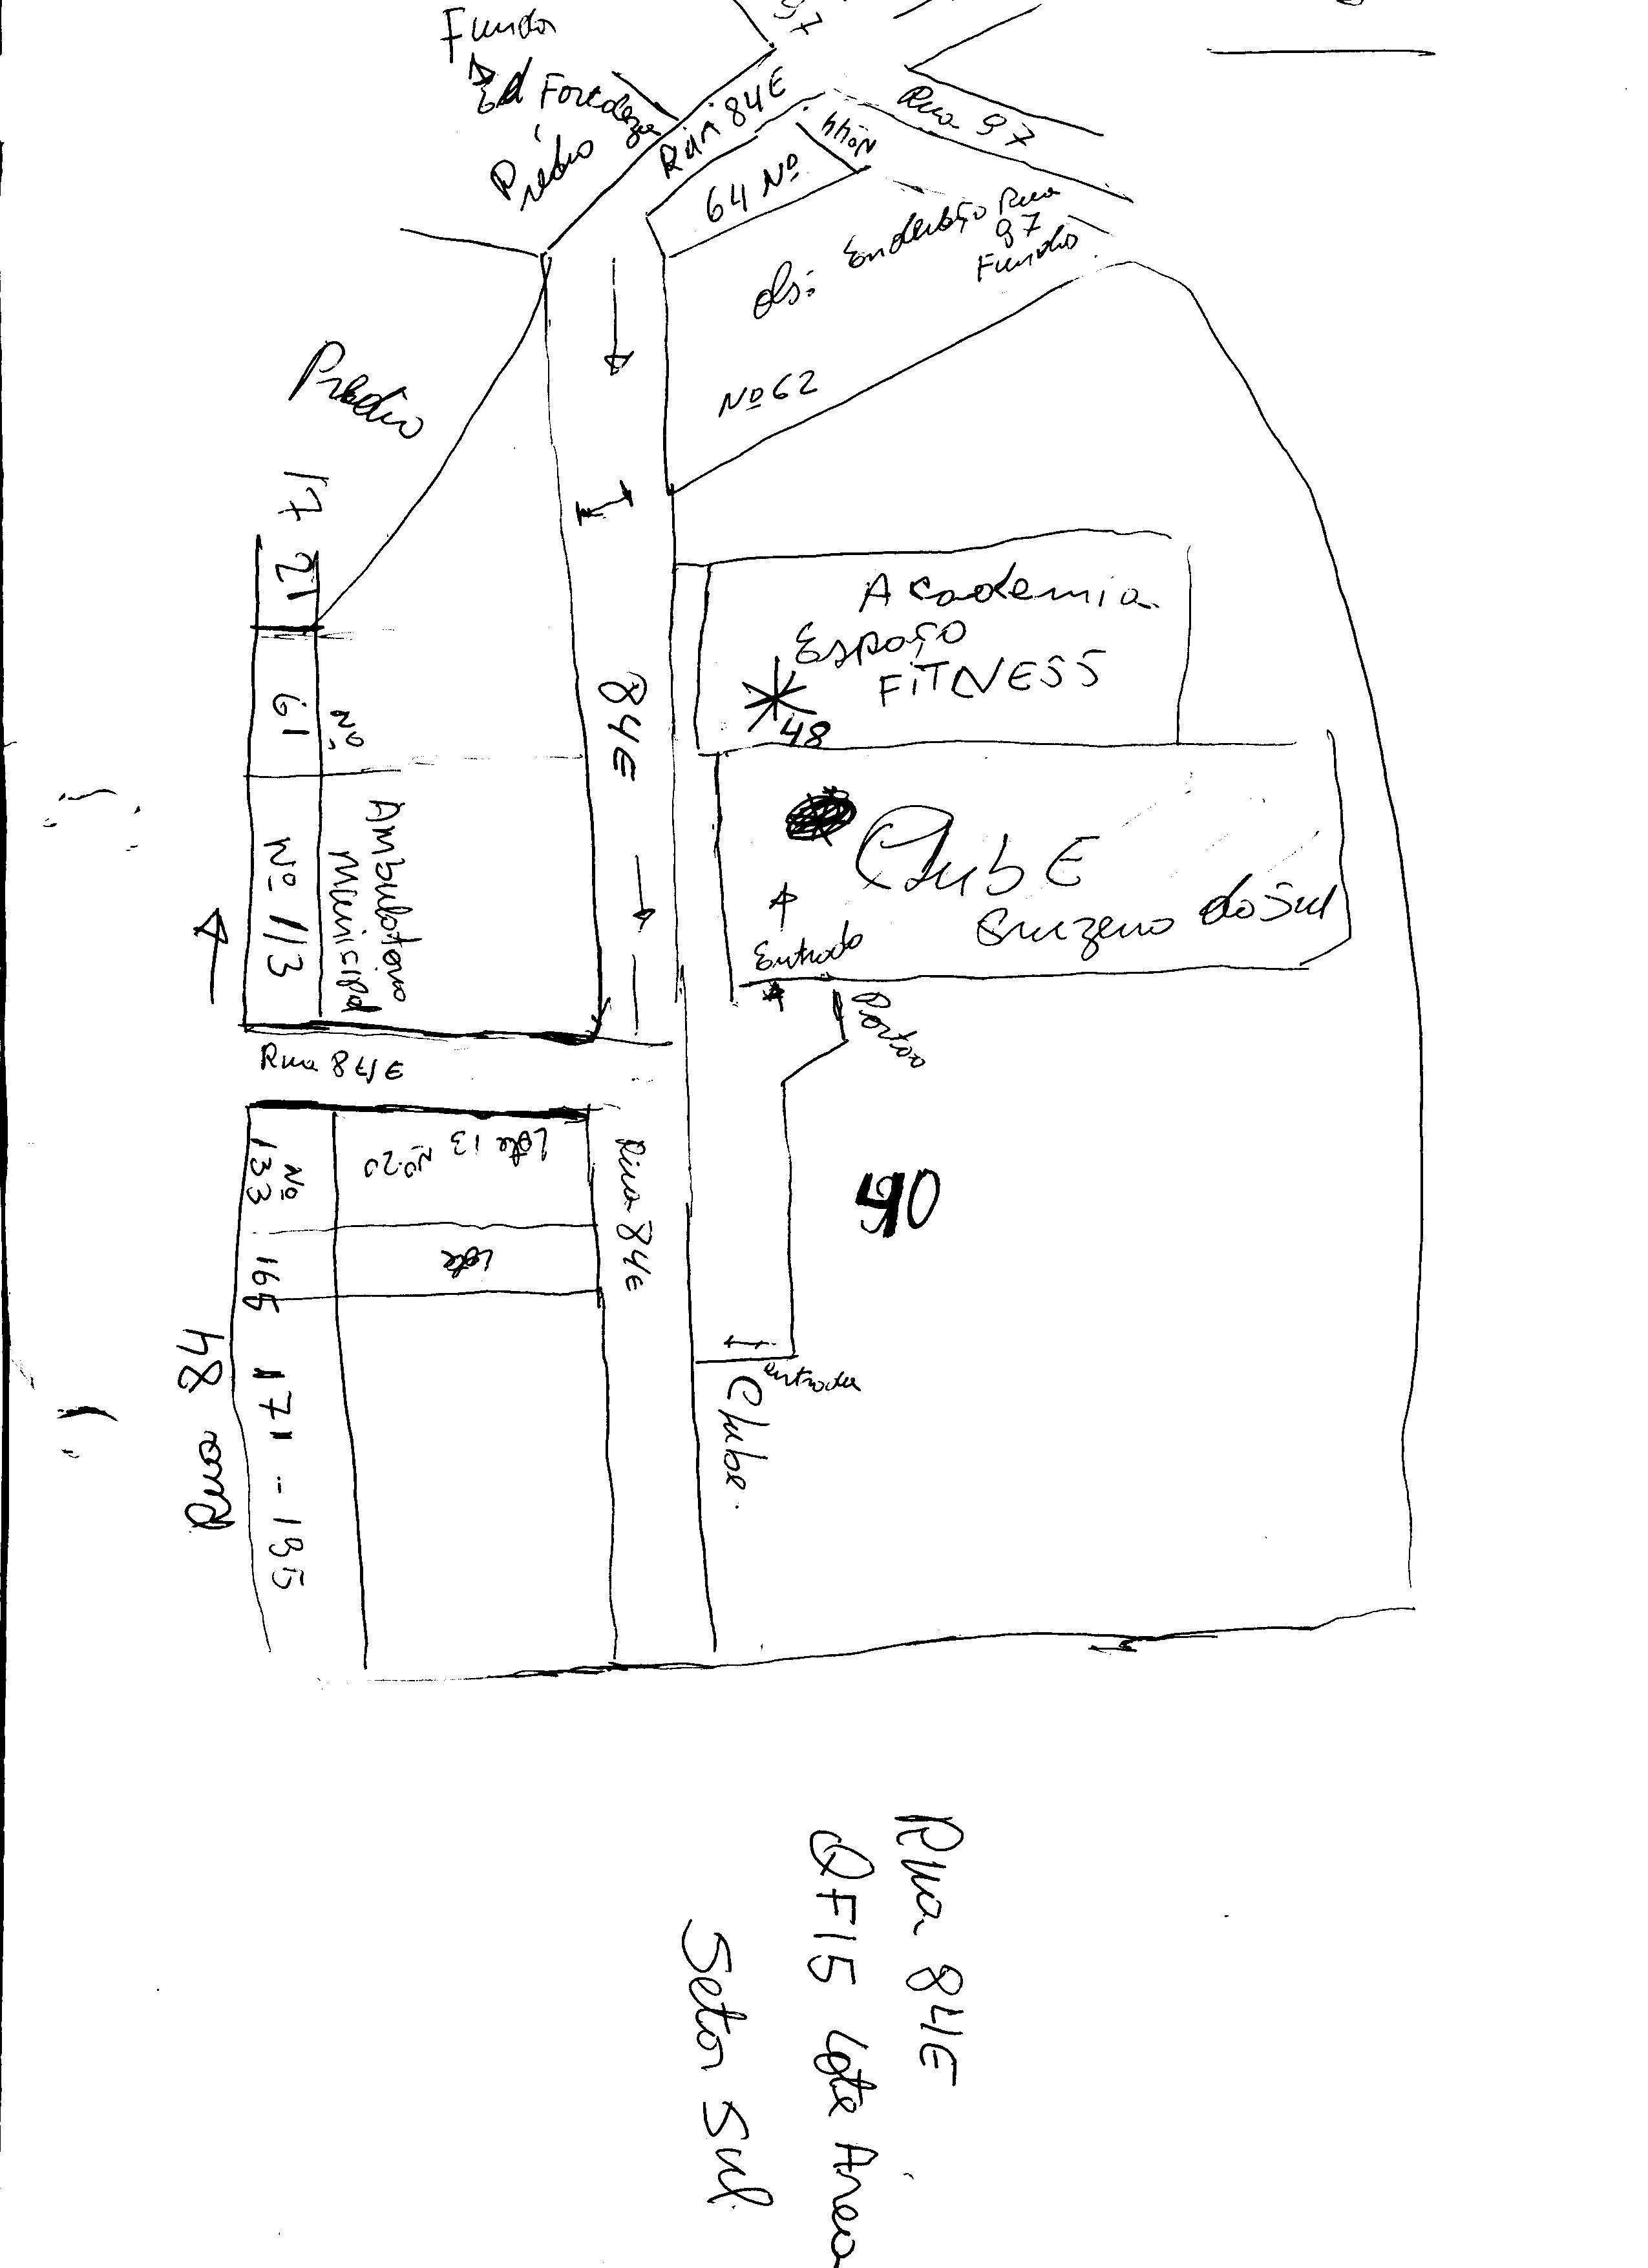 Fundo
Ed Fortaleza
Prédio
97
Rua 84E
Rua 97
Nº 44
64 Nº
obs: Endereço Rua
97
Fundo
Nº 62
Predio
17
21
61
Nº
Nº 113
Ambulatorio
Municipal
84E
Academia
Espaço
FITNESS
48
Club E
Cruzeiro do Sul
Entrada
Portao
Rua 84E
Nº
133
Lote 13
Nº 20
Lote
165
171 - 195
Rua 84
Rua 84E
90
entrada
Clube.
Rua 84E
QF15 Lote Area
Setor Sul